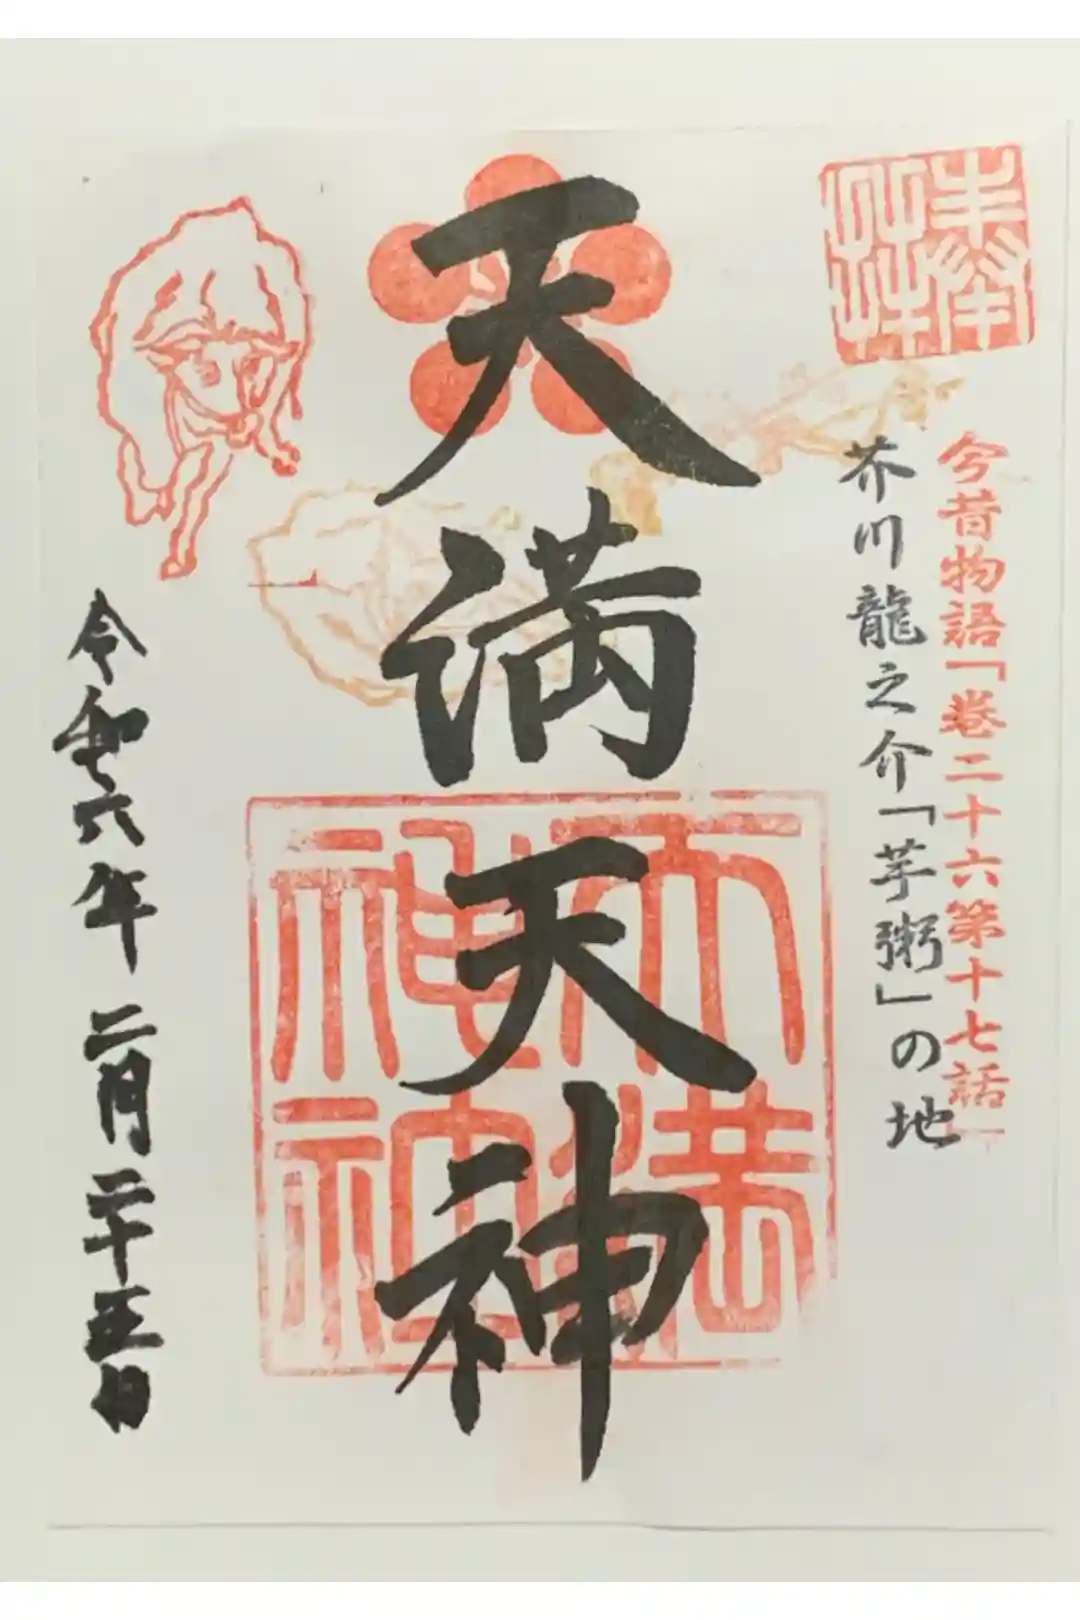 今昔物語「巻二十六第十七話」
芥川龍之介「芋粥」の地
天満天神
天満神社
令和六年 二月 二十五日